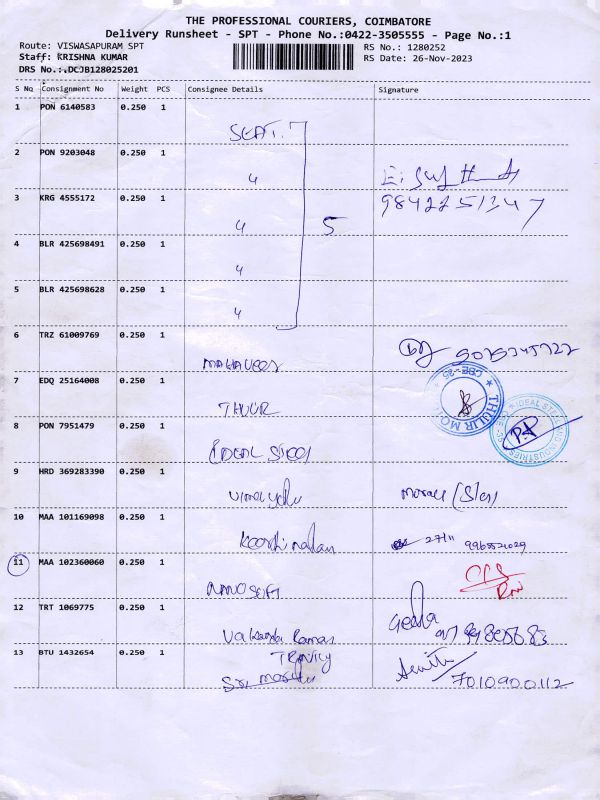 THE PROFESSIONAL COURIERS, COIMBATORE
Delivery Runsheet - SPT - Phone No.:0422-3505555 - Page No.:1
Route: VISWASAPURAM SPT
RS No.: 1280252
Staff: KRISHNA KUMAR
RS Date: 26-Nov-2023
DRS No.:.DCJB128025201
S No Consignment No Weight PCS Consignee Details Signature
1 PON 6140583 0.250 1
SEAT.
2 PON 9203048 0.250 1
"
3 KRG 4555172 0.250 1
9842251347
" 5
4 BLR 425698491 0.250 1
"
5 BLR 425698628 0.250 1
"
6 TRZ 61009769 0.250 1
MAHAVEER
7 EDQ 25164008 0.250 1
THULIR
CBE-35
8 PON 7951479 0.250 1
IDEAL STEEL
P.P
9 HRD 369283390 0.250 1
10 MAA 101169098 0.250 1
27/11
11 MAA 102360060 0.250 1
NANOSOFT
12 TRT 1069775 0.250 1
Geetha
13 BTU 1432654 0.250 1
TRINITY
7010900112